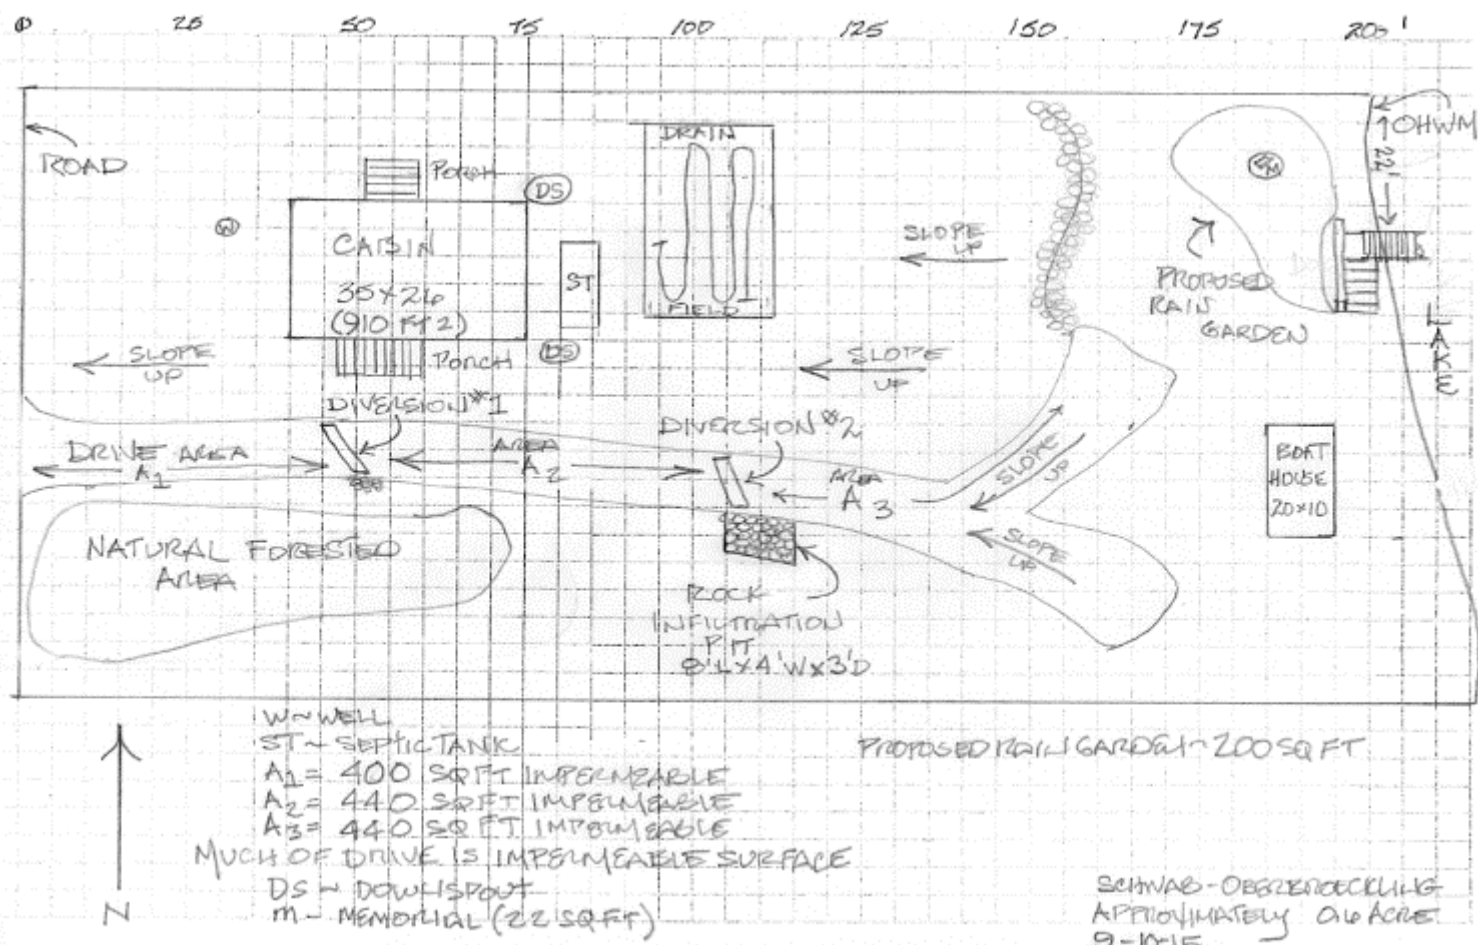 0 25 50 75 100 125 150 175 200'
ROAD
PORCH
DS
DRAIN
FIELD
OHWM
22'
W
CABIN
35x26
(910 FT2)
ST
DS
PORCH
SLOPE
UP
SLOPE
UP
SLOPE
UP
PROPOSED
RAIN
GARDEN
LAKE
DIVERSION #1
DIVERSION #2
DRIVE AREA
A1
AREA
A2
AREA
A3
SLOPE
UP
SLOPE
UP
BOAT
HOUSE
20x10
NATURAL FORESTED
AREA
ROCK
INFILTRATION
PIT
8'Lx4'Wx3'D
W~WELL
ST~SEPTIC TANK
A1= 400 SQ FT IMPERMEABLE
A2= 440 SQ FT IMPERMEABLE
A3= 440 SQ FT IMPERMEABLE
MUCH OF DRIVE IS IMPERMEABLE SURFACE
DS~DOWNSPOUT
M-MEMORIAL (22 SQ FT)
N
PROPOSED RAIN GARDEN~200 SQ FT
SCHWAB-OBERBROECKLING
APPROXIMATELY 0.6 ACRE